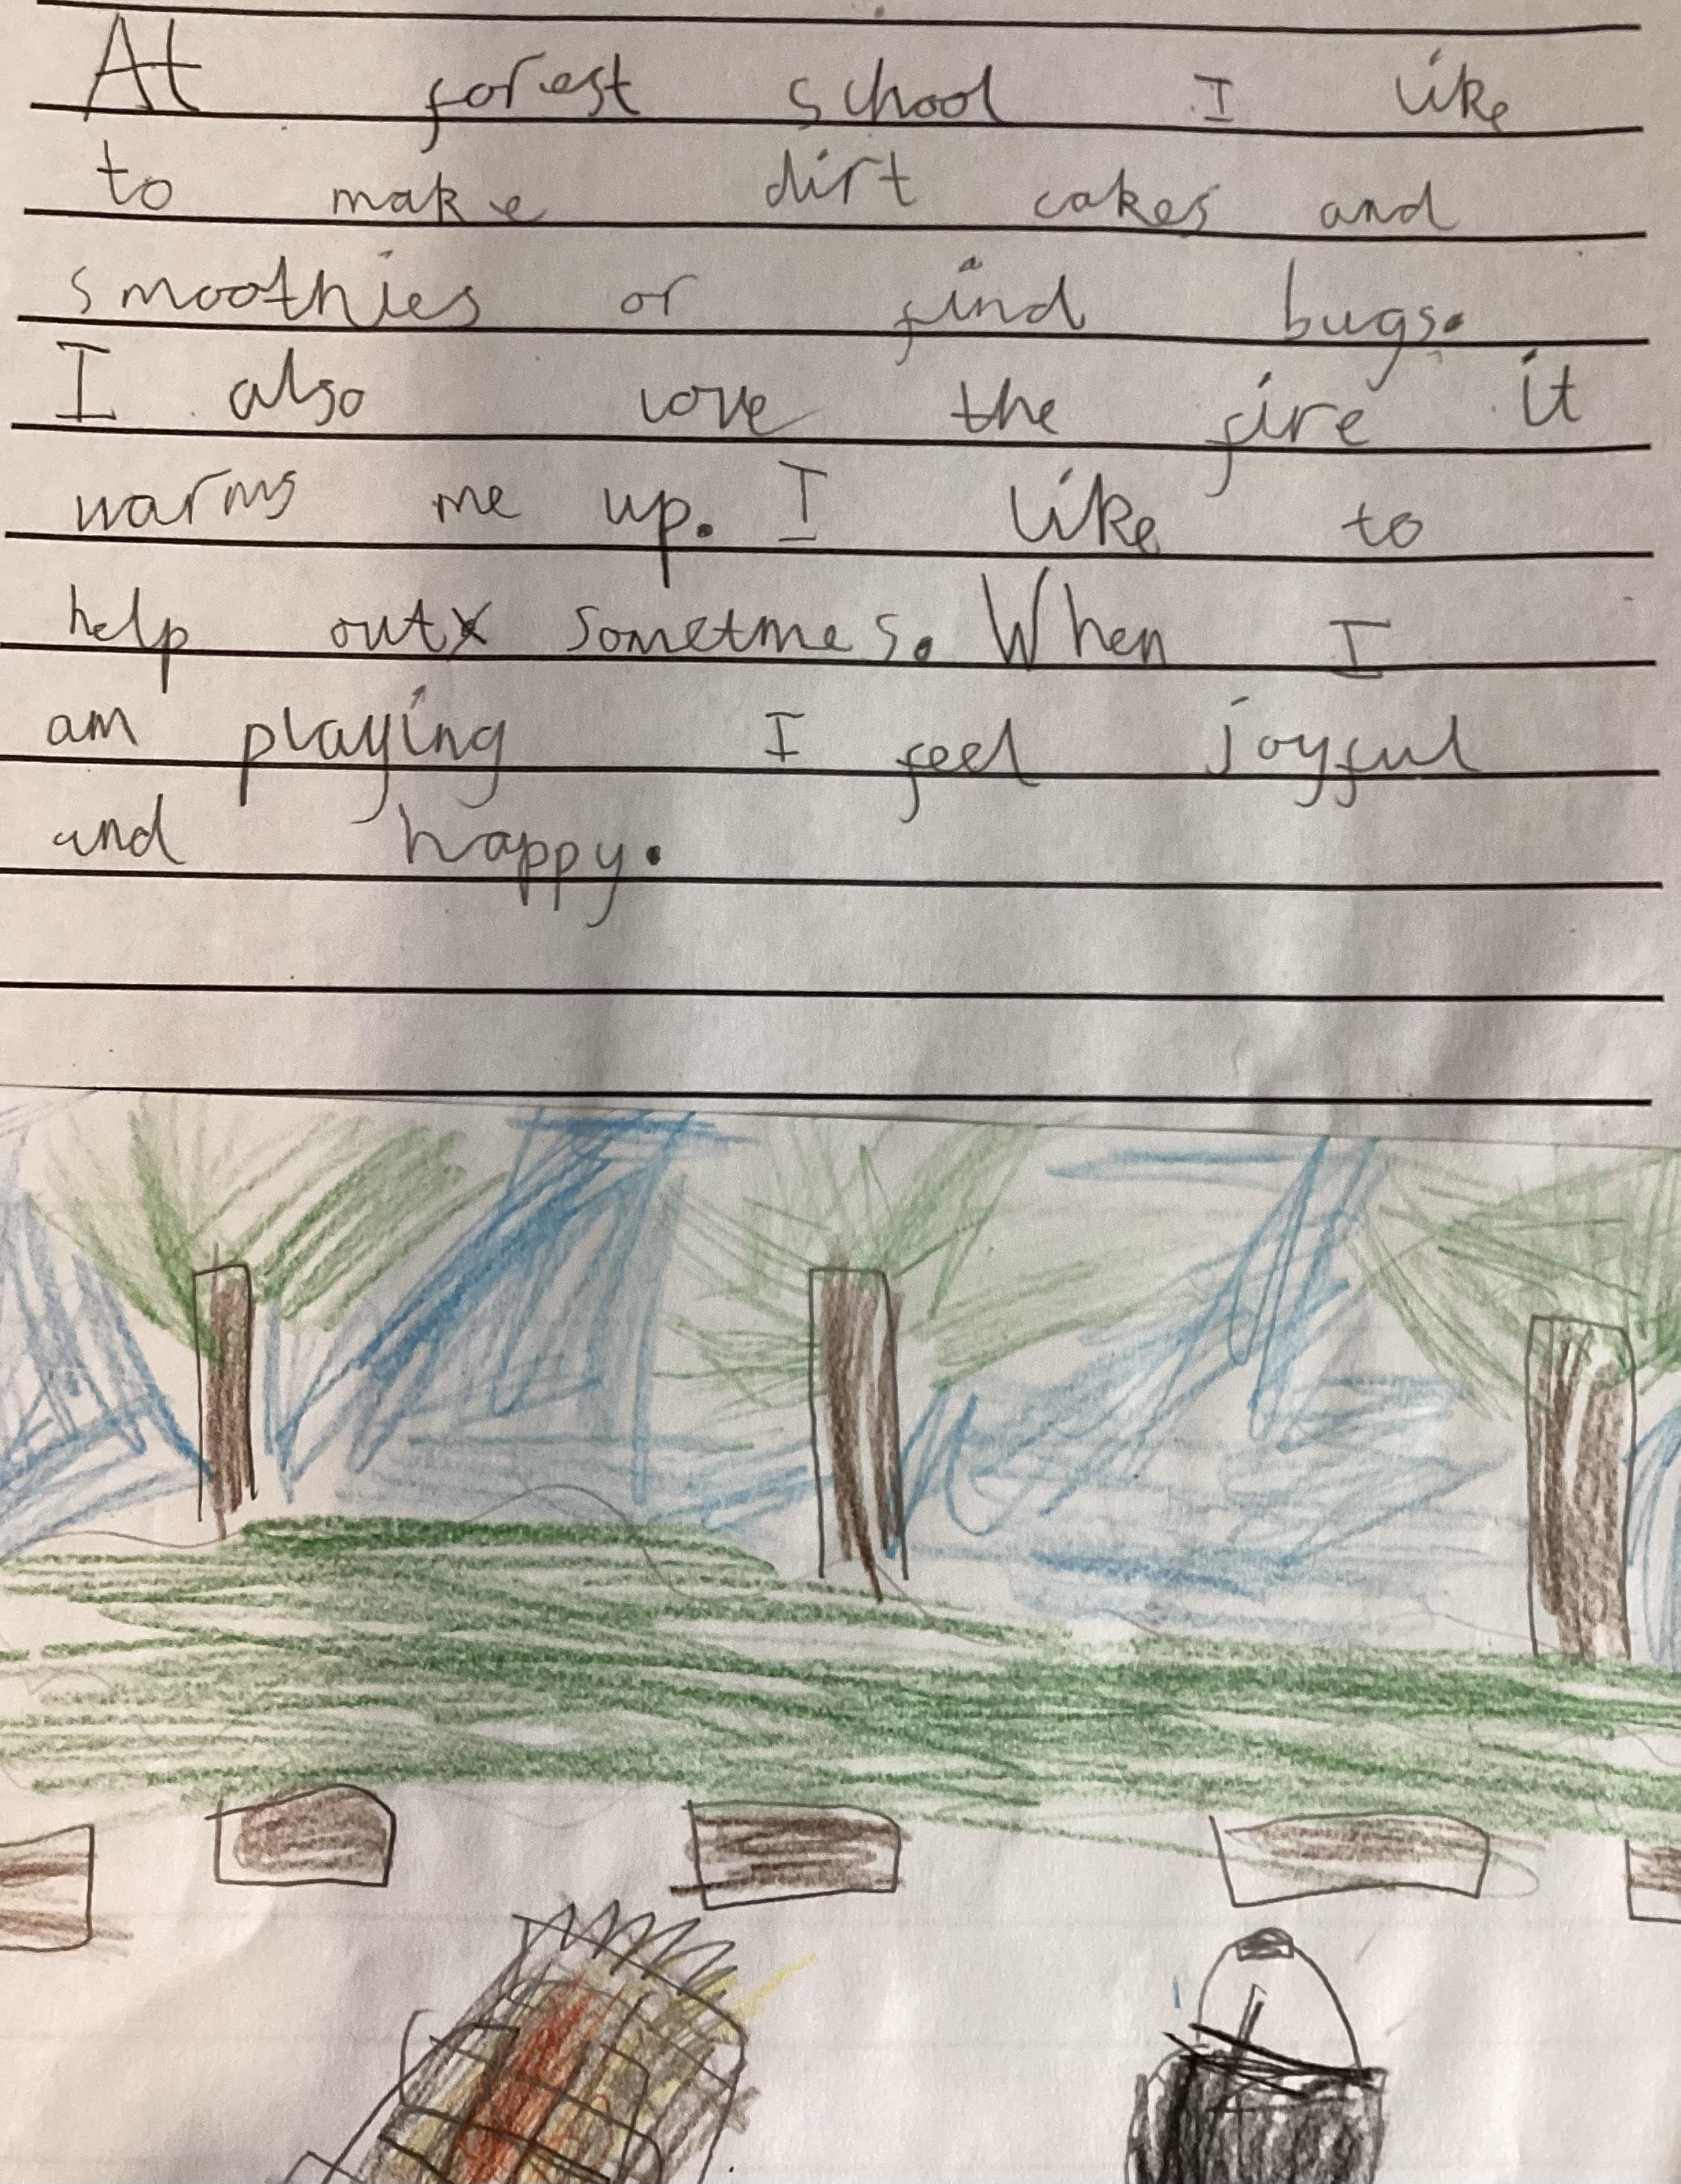 At forest school I like
to make dirt cakes and
smoothies or find bugs.
I also love the fire it
warms me up. I like to
help out sometmes. When I
am playing I feel joyful
and happy.